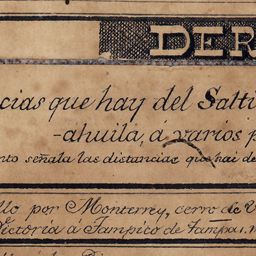 DER
cias que hay del Salti
-ahuila, á varios p
nto señala las distancias que hai de
llo por Monterrey, cerro de V
Victoria á Tampico de Tam